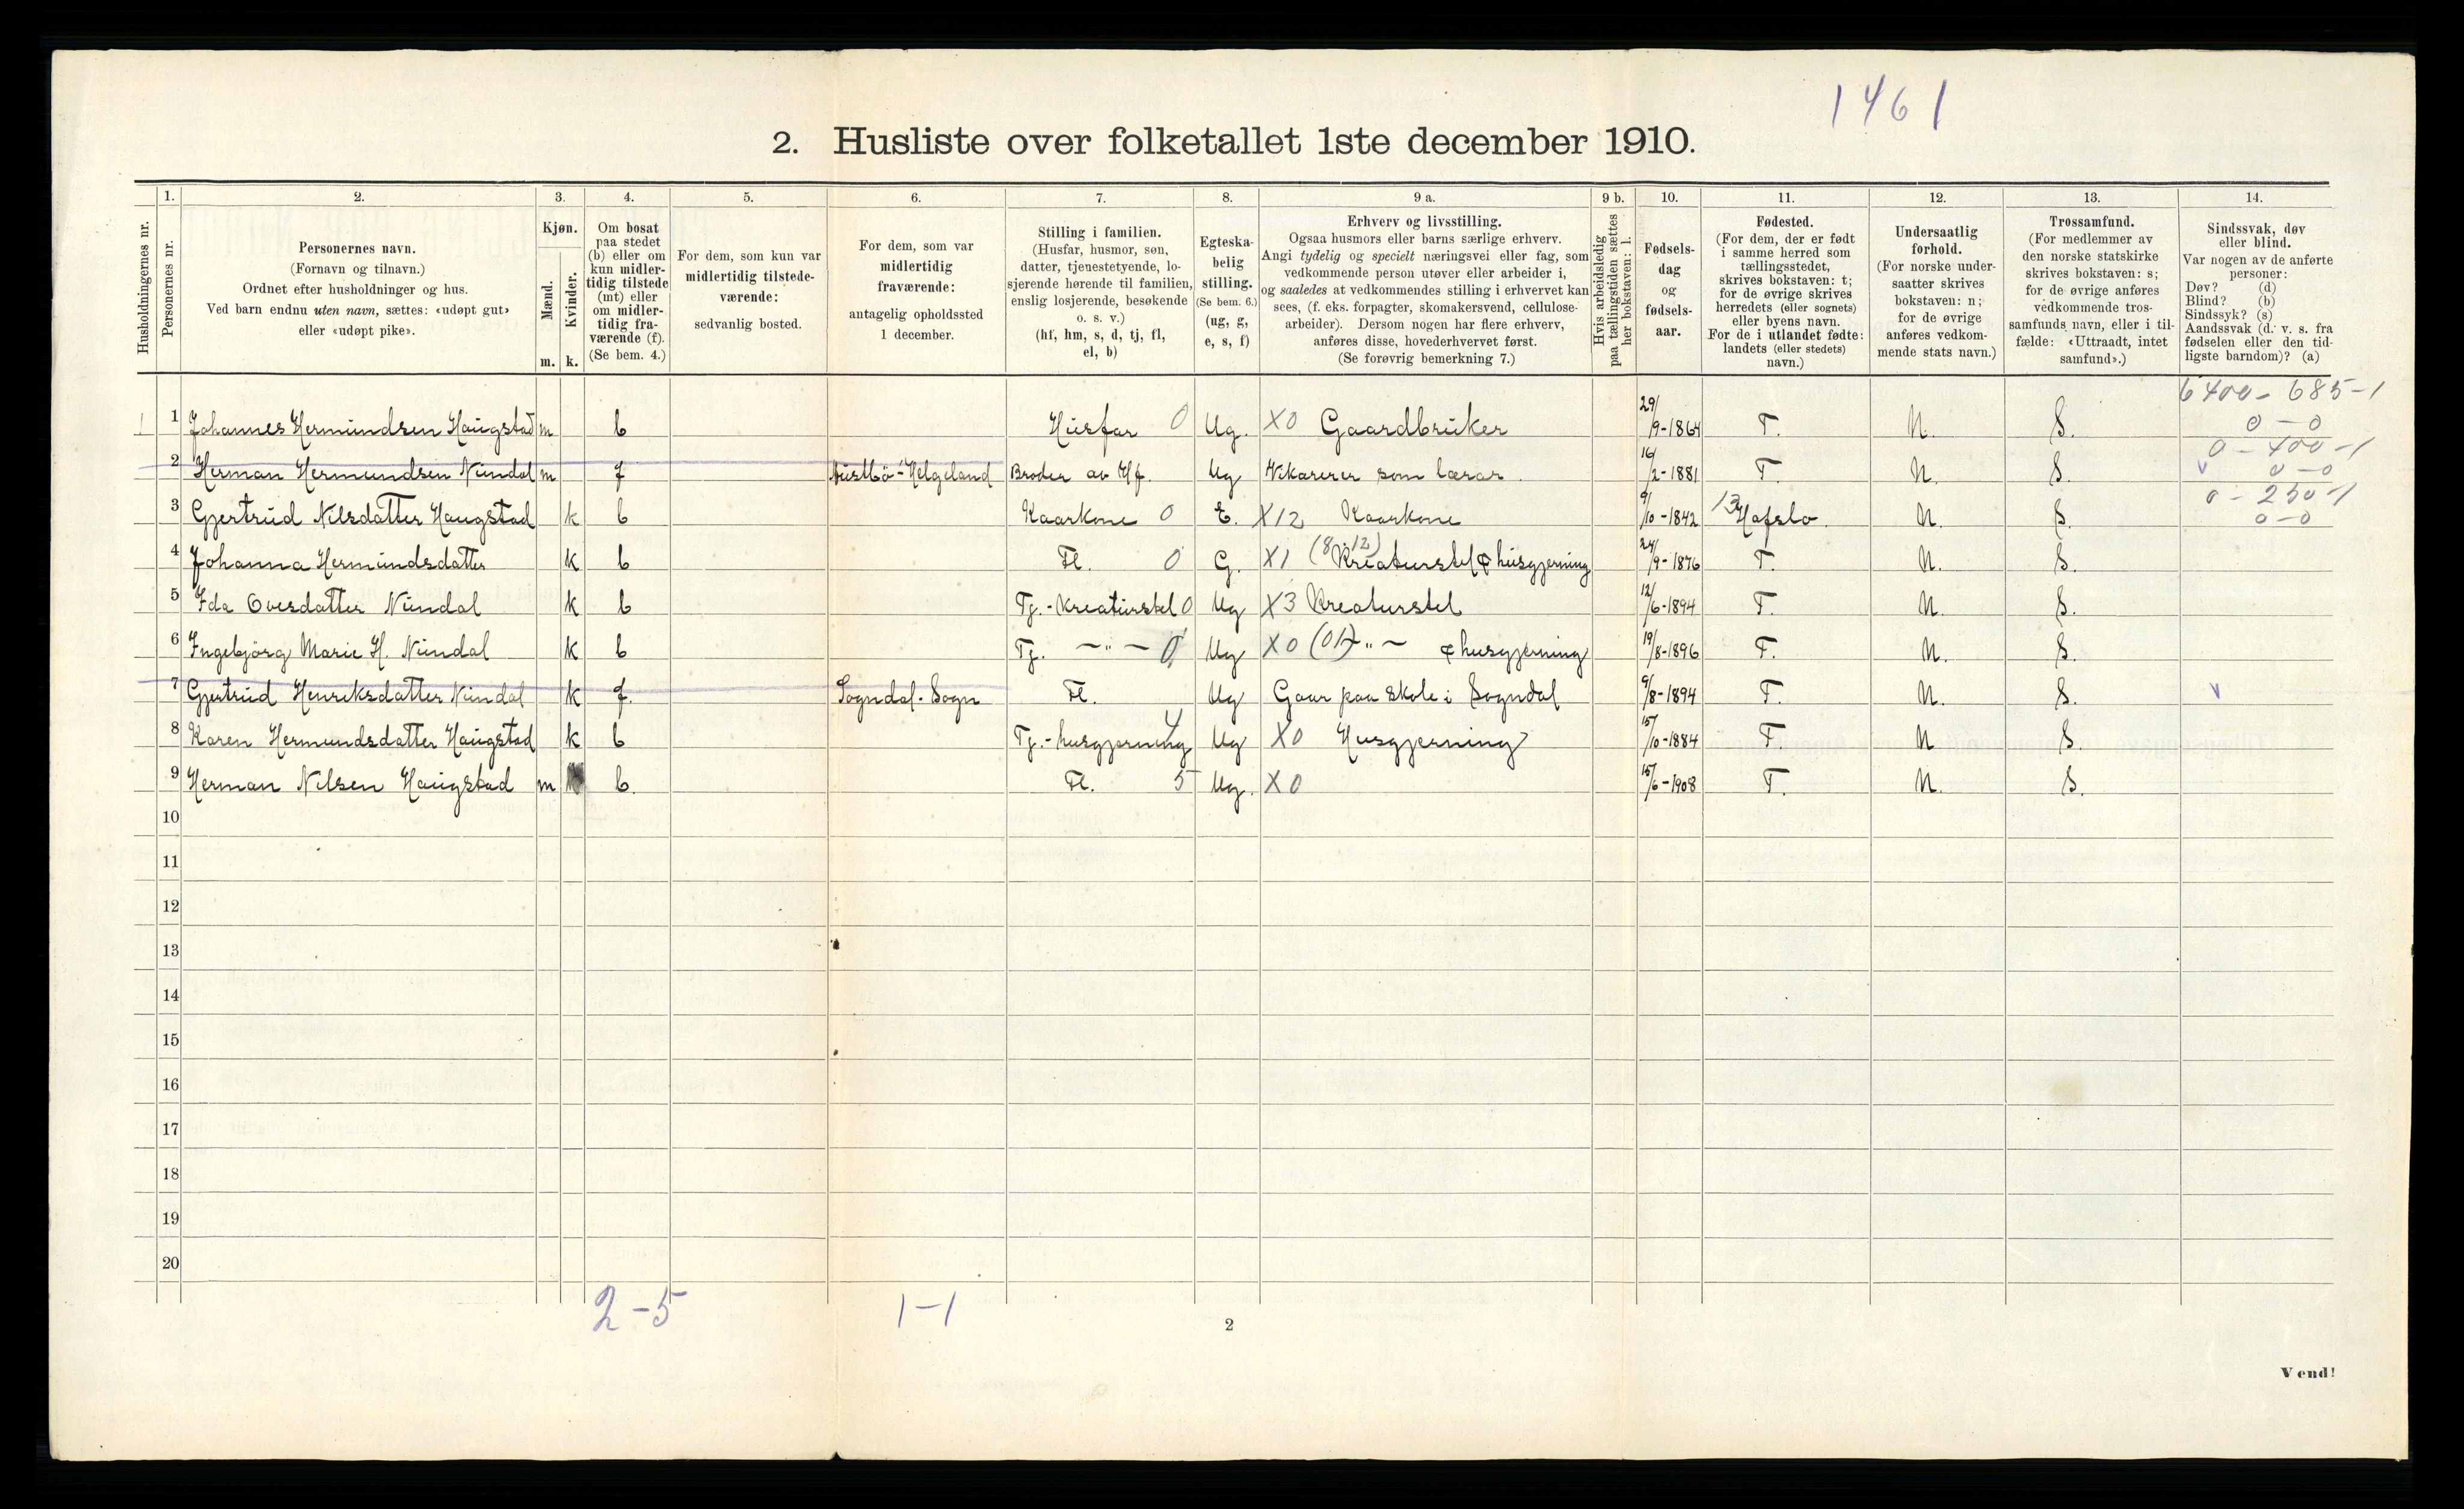 1461
2. Husliste over folketallet 1ste december 1910.
Husholdningernes nr.
1.
Personernes nr.
2.
Personernes navn.
(Fornavn og tilnavn.)
Ordnet efter husholdninger og hus.
Ved barn endnu uten navn, sættes: «udøpt gut»
eller «udøpt pike».
3.
Kjøn.
Mænd.
Kvinder.
m. k.
4.
Om bosat
paa stedet
(b) eller om
kun midler-
tidig tilstede
(mt) eller
om midler-
tidig fra-
værende (f).
(Se bem. 4.)
5.
For dem, som kun var
midlertidig tilstede-
værende:
sedvanlig bosted.
6.
For dem, som var
midlertidig
fraværende:
antagelig opholdssted
1 december.
7.
Stilling i familien.
(Husfar, husmor, søn,
datter, tjenestetyende, lo-
sjerende hørende til familien,
enslig losjerende, besøkende
o. s. v.)
(hf, hm, s, d, tj, fl,
el, b)
8.
Egteska-
belig
stilling.
(Se bem. 6.)
(ug, g,
e, s, f)
9 a.
Erhverv og livsstilling.
Ogsaa husmors eller barns særlige erhverv.
Angi tydelig og specielt næringsvei eller fag, som
vedkommende person utøver eller arbeider i,
og saaledes at vedkommendes stilling i erhvervet kan
sees, (f. eks. forpagter, skomakersvend, cellulose-
arbeider). Dersom nogen har flere erhverv,
anføres disse, hovederhvervet først.
(Se forøvrig bemerkning 7.)
9 b.
Hvis arbeidsledig
paa tællingstiden sættes
her bokstaven: l.
10.
Fødsels-
dag
og
fødsels-
aar.
11.
Fødested.
(For dem, der er født
i samme herred som
tællingsstedet,
skrives bokstaven: t;
for de øvrige skrives
herredets (eller sognets)
eller byens navn.
For de i utlandet fødte:
landets (eller stedets)
navn.)
12.
Undersaatlig
forhold.
(For norske under-
saatter skrives
bokstaven: n;
for de øvrige
anføres vedkom-
mende stats navn.)
13.
Trossamfund.
(For medlemmer av
den norske statskirke
skrives bokstaven: s;
for de øvrige anføres
vedkommende tros-
samfunds navn, eller i til-
fælde: «Uttraadt, intet
samfund».)
14.
Sindssvak, døv
eller blind.
Var nogen av de anførte
personer:
Døv? (d)
Blind? (b)
Sindssyk? (s)
Aandssvak (d. v. s. fra
fødselen eller den tid-
ligste barndom)? (a)
6400 - 685-1
1 1 Johannes Hermundsen Haugstad m b Husfar 0 Ug. X0 Gaardbruker 29/9-1864 T. N. S. 0-0
0-400-1
2 Herman Hermundsen Nundal m f Helgeland Broder av Hf. Ug Vikarerer som lærar. 16/2-1881 T. N. S. v 0-0
0-250-1
3 Gjertrud Nilsdatter Haugstad k b Kaarkone 0 E. X12 Kaarkone 9/10-1842 13 Hafslo. N. S. 0-0
4 Johanna Hermundsdatter k b Fl. 0 G. X1 (8.12) Kreaturstel & husgjerning 24/9-1876 T. N. S.
5 Ida Ovesdatter Nundal k b Tj.-Kreaturstel 0 Ug X3 Kreaturstel 12/6-1894 T. N. S.
6 Ingebjörg Marie H. Nundal k b Tj. -"- 0 Ug X0 (01) -"- & husgjerning 19/8-1896 T. N. S.
7 Gjertrud Henriksdatter Nundal k f. Sogndal. Sogn Fl. Ug Gaar paa skole i Sogndal 9/8-1894 T. N. S. v
8 Karen Hermundsdatter Haugstad k b Tj.-husgjerning 4 Ug X0 Husgjerning 15/10-1884 T. N S.
9 Herman Nilsen Haugstad m b. Fl. 5 Ug. X0 15/6-1908 T. N. S.
10
11
12
13
14
15
16
17
18
19
20
2-5 1-1
2
Vend!